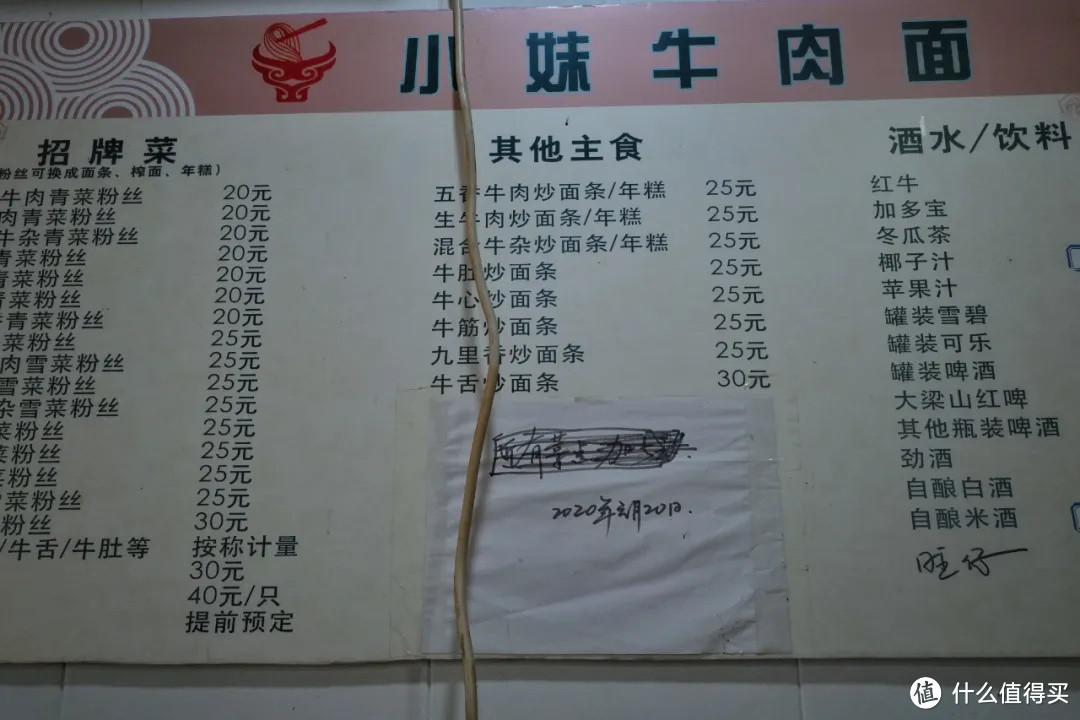 小妹牛肉面
招牌菜
粉丝可换成面条、榨面、年糕)
牛肉青菜粉丝 20元
肉青菜粉丝 20元
牛杂青菜粉丝 20元
青菜粉丝 20元
青菜粉丝 20元
青菜粉丝 20元
青菜粉丝 20元
菜粉丝 25元
肉雪菜粉丝 25元
雪菜粉丝 25元
杂雪菜粉丝 25元
菜粉丝 25元
菜粉丝 25元
菜粉丝 25元
菜粉丝 25元
粉丝 30元
/牛舌/牛肚等 按称计量
30元
40元/只
提前预定
其他主食
五香牛肉炒面条/年糕 25元
生牛肉炒面条/年糕 25元
混合牛杂炒面条/年糕 25元
牛肚炒面条 25元
牛心炒面条 25元
牛筋炒面条 25元
九里香炒面条 25元
牛舌炒面条 30元
2020年元月20日.
酒水/饮料
红牛
加多宝
冬瓜茶
椰子汁
苹果汁
罐装雪碧
罐装可乐
罐装啤酒
大梁山红啤
其他瓶装啤酒
劲酒
自酿白酒
自酿米酒
旺仔
值 什么值得买